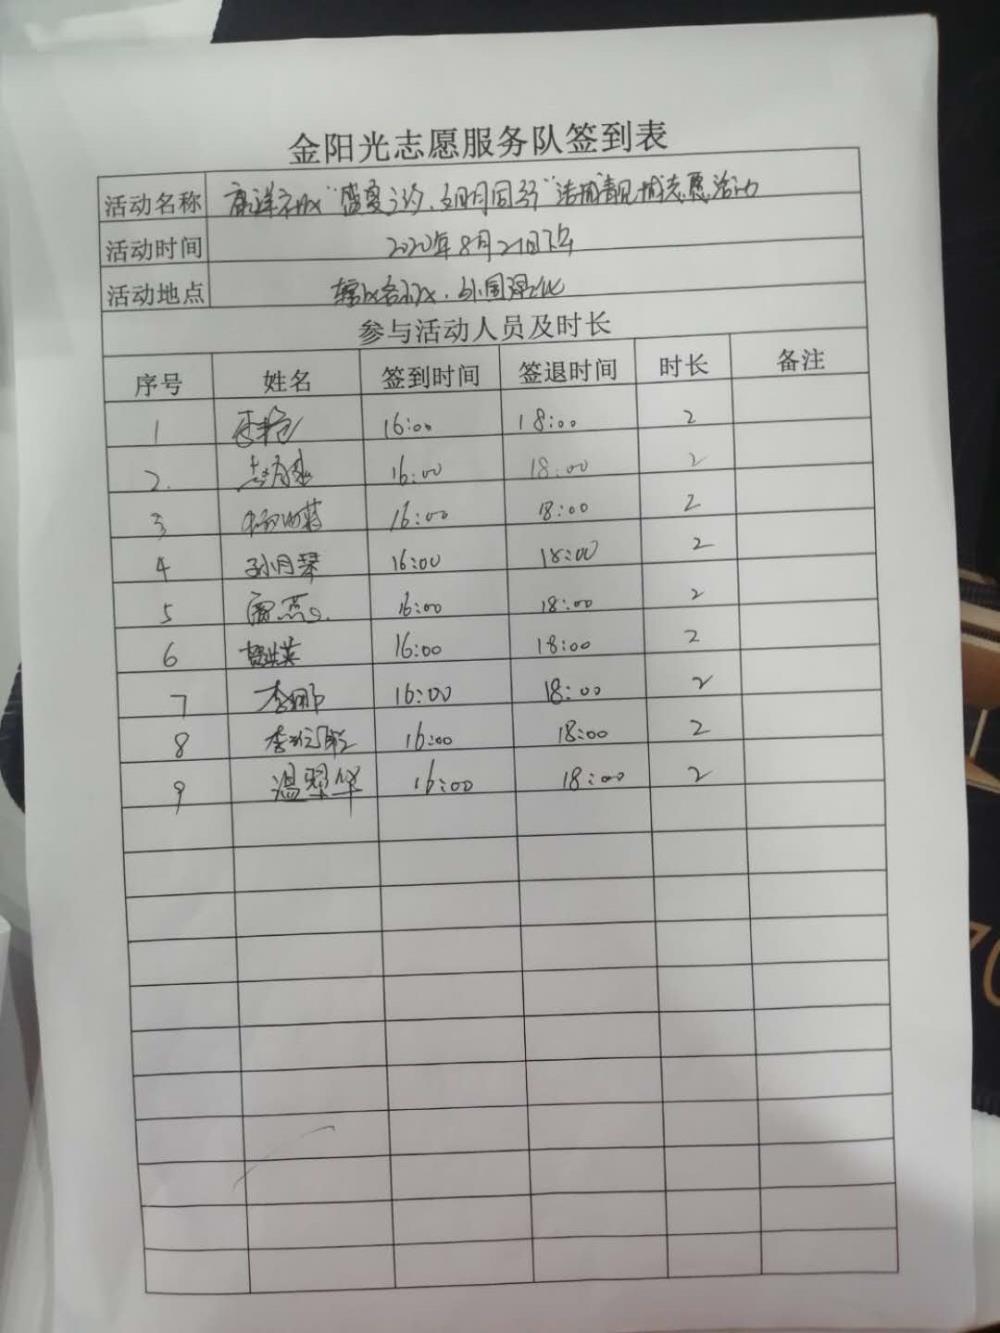 金阳光志愿服务队签到表
活动名称 康洋社区"盛夏之约,与月同行"洁城靓城志愿活动
活动时间 2020年8月21日下午
活动地点 辖区各小区、外围绿化
参与活动人员及时长
序号 姓名 签到时间 签退时间 时长 备注
1 16:00 18:00 2
2. 16:00 18:00 2
3 16:00 18:00 2
4 孙月琴 16:00 18:00 2
5 16:00 18:00 2
6 16:00 18:00 2
7 李娜 16:00 18:00 2
8 李 16:00 18:00 2
9 温翠华 16:00 18:00 2